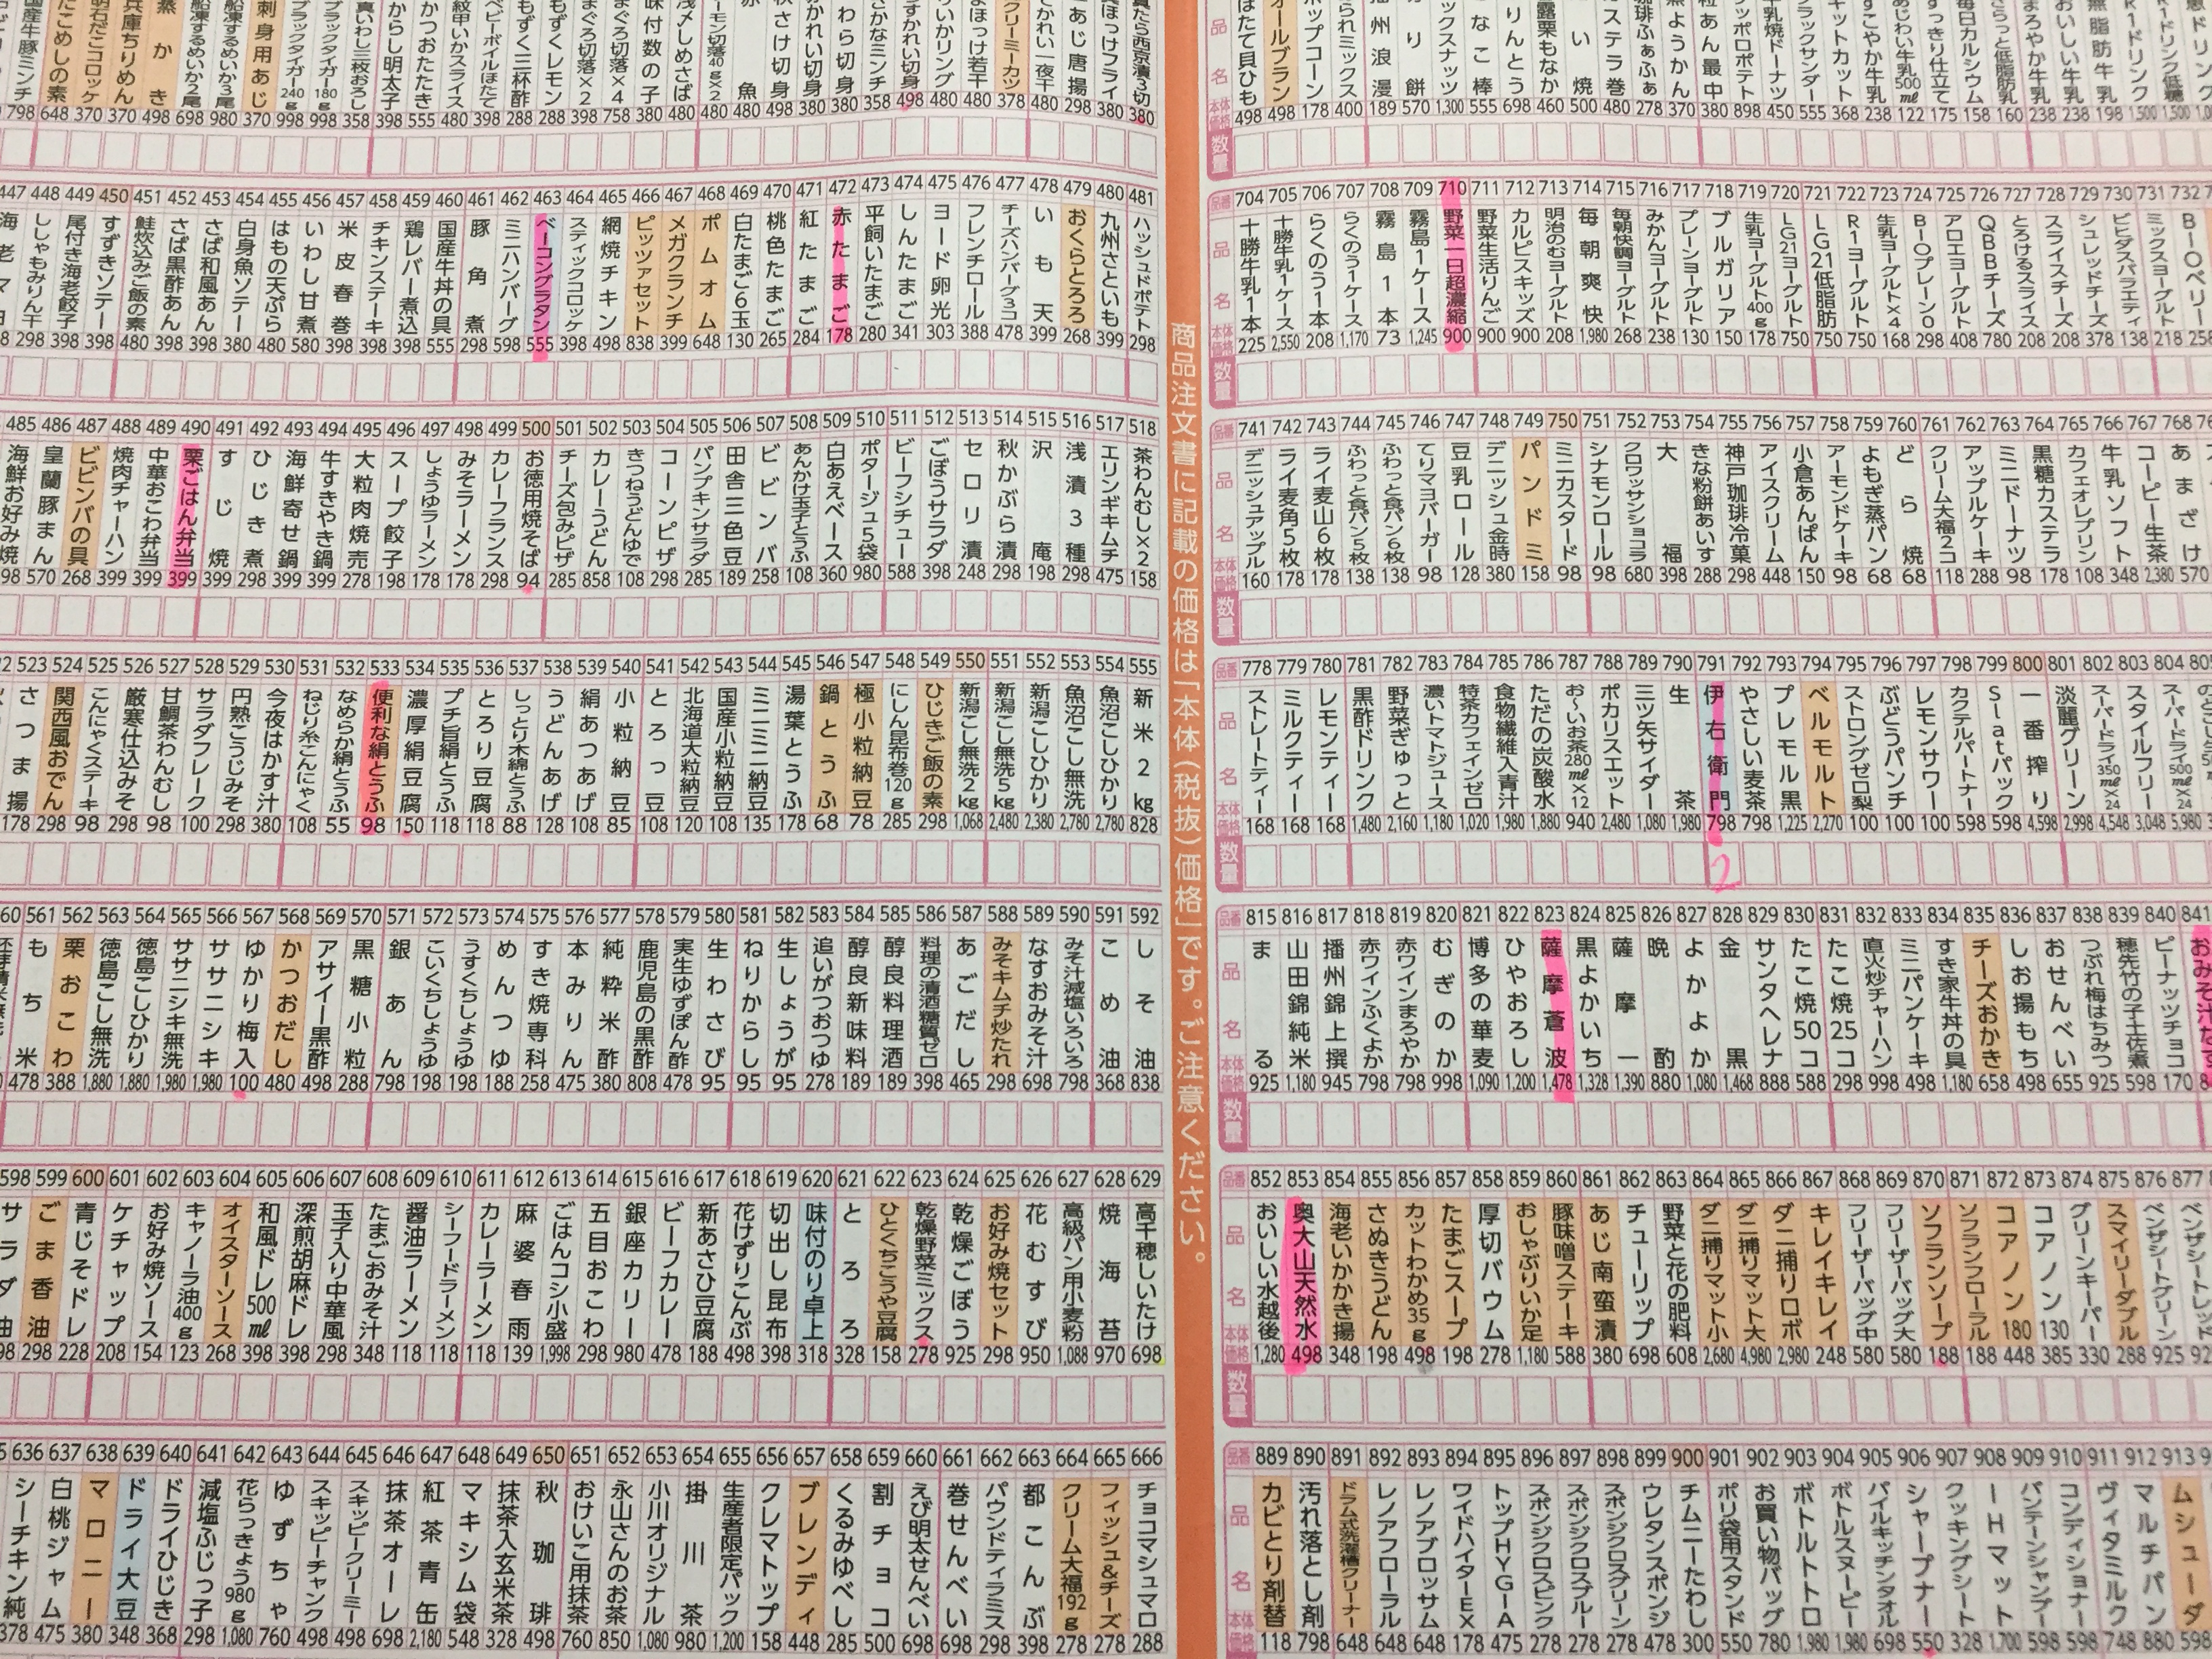 国産牛豚ミンチ たこめしの素 明石だこコロッケ 兵庫ちりめん 蒸かき 船凍するめいか2尾 船凍するめいか3尾 刺身用あじ ブラックタイガー240g ブラックタイガー180g 真いわし三枚おろし からし明太子 かつおたたき 紋甲いかスライス ベビーボイルほたて もずく三杯酢 もずくレモン まぐろ切落×2 まぐろ切落×4 味付数の子 浅〆しめさば サーモン切落40g×2 赤魚 秋さけ切身 からすかれい切身
798 648 370 370 498 698 980 370 998 998 358 398 555 480 398 288 288 398 758 380 480 480 480 498 380 380 358 498 480 480 378 480 298 380 380
447 448 449 450 451 452 453 454 455 456 457 458 459 460 461 462 463 464 465 466 467 468 469 470 471 472 473 474 475 476 477 478 479 480 481
ししゃもみりん干 尾付き海老餃子 すずきソテー 鮭炊込みご飯の素 さば黒酢あん さば和風あん 白身魚ソテー はもの天ぷら いわし甘煮 米皮春巻 チキンステーキ 鶏レバー煮込 国産牛丼の具 豚角煮 ミニハンバーグ ベーコングラタン スティックコロッケ 網焼チキン ピッツァセット メガクランチ ポムオム 白たまご6玉 桃色たまご 紅たまご 赤たまご 平飼いたまご しんたまご ヨード卵光 フレンチロール チーズハンバーグ3コ いも天 おくらとろろ 九州さといも ハッシュドポテト
298 398 398 480 398 398 380 480 580 398 398 398 555 298 598 555 398 498 838 399 648 130 265 284 178 280 341 303 388 478 399 268 399 298
485 486 487 488 489 490 491 492 493 494 495 496 497 498 499 500 501 502 503 504 505 506 507 508 509 510 511 512 513 514 515 516 517 518
海鮮お好み焼 皇蘭豚まん ビビンバの具 焼肉チャーハン 中華おこわ弁当 栗ごはん弁当 すじ焼 ひじき煮 海鮮寄せ鍋 牛すきやき鍋 大粒肉焼売 スープ餃子 しょうゆラーメン みそラーメン カレーフランス お徳用焼そば チーズ包みピザ カレーうどん きつねうどんゆで コーンピザ パンプキンサラダ 田舎三色豆 ビビンバ あんかけ玉子とうふ 白あえベース ポタージュ5袋 ビーフシチュー ごぼうサラダ セロリ漬 秋かぶら漬 沢庵 浅漬3種 エリンギキムチ 茶わんむし×2
98 570 268 399 399 399 399 298 399 399 278 198 178 178 298 94 285 858 108 298 285 189 258 108 360 980 588 398 248 298 198 298 475 158
523 524 525 526 527 528 529 530 531 532 533 534 535 536 537 538 539 540 541 542 543 544 545 546 547 548 549 550 551 552 553 554 555
さつま揚 関西風おでん こんにゃくステーキ 厳寒仕込みそ 甘鯛茶わんむし サラダフレーク 円熟こうじみそ 今夜はかす汁 ねじり糸こんにゃく なめらか絹とうふ 便利な絹とうふ 濃厚絹豆腐 プチ旨絹とうふ とろり豆腐 しっとり木綿とうふ うどんあげ 絹あつあげ 小粒納豆 とろっ豆 北海道大粒納豆 国産小粒納豆 ミニミニ納豆 湯葉とうふ 鍋とうふ 極小粒納豆 にしん昆布巻120g ひじきご飯の素 新潟こし無洗2kg 新潟こし無洗5kg 新潟こしひかり 魚沼こしひかり 魚沼こし無洗 新米2kg
178 298 98 298 98 100 298 380 108 55 98 150 118 118 88 128 108 85 108 120 108 135 178 68 78 285 298 1,068 2,480 2,380 2,780 2,780 828
561 562 563 564 565 566 567 568 569 570 571 572 573 574 575 576 577 578 579 580 581 582 583 584 585 586 587 588 589 590 591 592
もち米 栗おこわ 徳島こし無洗 徳島こしひかり ササニシキ無洗 ササニシキ ゆかり梅入 かつおだし アサイー黒酢 黒糖小粒 銀あん こいくちしょうゆ うすくちしょうゆ めんつゆ すき焼専科 本みりん 純粋米酢 鹿児島の黒酢 実生ゆずぽん酢 生わさび ねりからし 生しょうが 追いがつおつゆ 醇良新味料 醇良料理酒 料理の清酒糖質ゼロ あごだし みそキムチ炒たれ なすおみそ汁 みそ汁減塩いろいろ こめ油 しそ油
478 388 1,880 1,880 1,980 1,980 100 480 498 288 798 198 198 188 258 475 380 808 478 95 95 95 278 189 189 398 465 298 698 798 368 838
598 599 600 601 602 603 604 605 606 607 608 609 610 611 612 613 614 615 616 617 618 619 620 621 622 623 624 625 626 627 628 629
サラダ油 ごま香油 青じそドレ ケチャップ お好み焼ソース キャノーラ油400g オイスターソース 和風ドレ500ml 深煎胡麻ドレ 玉子入り中華風 たまごおみそ汁 醤油ラーメン シーフードラーメン カレーラーメン 麻婆春雨 ごはんコシ小盛 五目おこわ 銀座カリー ビーフカレー 新あさひ豆腐 花けずりこんぶ 切出し昆布 味付のり卓上 とろろ ひとくちこうや豆腐 乾燥野菜ミックス 乾燥ごぼう お好み焼セット 花むすび 高級パン用小麦粉 焼海苔 高千穂しいたけ
98 298 228 208 154 123 268 398 398 298 348 118 118 118 139 1,998 298 980 478 188 498 398 318 328 158 278 925 298 950 1,088 970 698
636 637 638 639 640 641 642 643 644 645 646 647 648 649 650 651 652 653 654 655 656 657 658 659 660 661 662 663 664 665 666
シーチキン純 白桃ジャム マロニー ドライ大豆 ドライひじき 減塩ふじっ子 花らっきょう980g ゆずちゃ スキッピーチャンク スキッピークリーミー 抹茶オーレ 紅茶青缶 マキシム袋 抹茶入玄米茶 秋珈琲 おけいこ用抹茶 永山さんのお茶 小川オリジナル 掛川茶 生産者限定パック クレマトップ ブレンディ くるみゆべし 割チョコ えび明太せんべい 巻せんべい パウンドティラミス 都こんぶ クリーム大福192g フィッシュ&チーズ チョコマシュマロ
378 475 380 348 368 298 1,080 760 498 498 698 2,180 548 328 498 760 850 1,080 980 1,200 158 448 285 500 698 698 298 398 278 278 288
商品注文書に記載の価格は「本体(税抜)価格」です。ご注意ください。
品名 ほたて貝ひも オールブラン ポップコーン 播州浪漫 かりんとう 甘露栗もなか カステラ巻 珈琲ふぁふぁ 粒あん最中 サッポロポテト 牛乳焼ドーナツ ブラックサンダー キットカット すこやか牛乳 あじわい牛乳500ml すっきり仕立て 毎日カルシウム さらっと低脂肪乳 まろやか牛乳 おいしい牛乳 無脂肪牛乳 R1ドリンク R1ドリンク低糖
本体価格 498 498 178 400 189 570 1,300 555 698 460 500 480 278 370 380 898 450 555 368 238 122 175 158 160 238 238 198 1,500 1,500
数量
品番 704 705 706 707 708 709 710 711 712 713 714 715 716 717 718 719 720 721 722 723 724 725 726 727 728 729 730 731 732
品名 十勝牛乳1本 十勝牛乳1ケース らくのう1本 らくのう1ケース 霧島1本 霧島1ケース 野菜一日超濃縮 野菜生活りんご カルピスキッズ 明治のむヨーグルト 毎朝爽快 毎朝快調ヨーグルト みかんヨーグルト プレーンヨーグルト ブルガリア 生乳ヨーグルト400g LG21ヨーグルト LG21低脂肪 R1ヨーグルト 生乳ヨーグルト×4 BIOプレーン0 アロエヨーグルト QBBチーズ とろけるスライス スライスチーズ シュレッドチーズ ビヒダスバラエティ ミックスヨーグルト BIOベリー
本体価格 225 2,550 208 1,170 73 1,245 900 900 900 208 1,980 268 238 130 150 178 750 750 750 168 298 408 780 208 208 378 138 218 258
数量
品番 741 742 743 744 745 746 747 748 749 750 751 752 753 754 755 756 757 758 759 760 761 762 763 764 765 766 767 768
品名 デニッシュアップル ライ麦角5枚 ライ麦山6枚 ふわっと食パン5枚 ふわっと食パン6枚 てりマヨバーガー 豆乳ロール デニッシュ金時 パンドミ ミニカスタード シナモンロール クロワッサンショコラ 大福 きな粉餅あいす 神戸珈琲冷菓 アイスクリーム 小倉あんぱん アーモンドケーキ よもぎ蒸パン どら焼 クリーム大福2コ アップルケーキ ミニドーナツ 黒糖カステラ カフェオレプリン 牛乳ソフト コーピー生茶 あまざけ
本体価格 160 178 178 138 138 98 128 380 158 98 98 680 398 288 298 448 150 98 68 68 118 288 98 178 108 348 2,380 570
数量
品番 778 779 780 781 782 783 784 785 786 787 788 789 790 791 792 793 794 795 796 797 798 799 800 801 802 803 804
品名 ストレートティー ミルクティー レモンティー 黒酢ドリンク 野菜ぎゅっと 濃いトマトジュース 特茶カフェインゼロ 食物繊維入青汁 ただの炭酸水 お〜いお茶280ml×12 ポカリスエット 三ツ矢サイダー 生茶 伊右衛門 やさしい麦茶 プレモル黒 ベルモルト ストロングゼロ梨 ぶどうパンチ レモンサワー カクテルパートナー Slatパック 一番搾り 淡麗グリーン スーパードライ350ml×24 スタイルフリー スーパードライ500ml×24
本体価格 168 168 168 1,480 2,160 1,180 1,020 1,980 1,880 940 2,480 1,080 1,980 798 798 1,225 2,270 100 100 100 598 598 4,598 2,998 4,548 3,048 5,980
数量 2
品番 815 816 817 818 819 820 821 822 823 824 825 826 827 828 829 830 831 832 833 834 835 836 837 838 839 840 841
品名 まる 山田錦純米 播州錦上撰 赤ワインふくよか 赤ワインまろやか むぎのか 博多の華麦 ひやおろし 薩摩蒼波 黒よかいち 薩摩一 晩酌 よかよか 金黒 サンタヘレナ たこ焼50コ たこ焼25コ 直火炒チャーハン ミニパンケーキ すき家牛丼の具 チーズおかき しお揚もち おせんべい つぶれ梅はちみつ 穂先竹の子土佐煮 ピーナッツチョコ
本体価格 925 1,180 945 798 798 998 1,090 1,200 1,478 1,328 1,390 880 1,080 1,468 888 588 298 998 498 1,180 658 498 655 925 598 170
数量
品番 852 853 854 855 856 857 858 859 860 861 862 863 864 865 866 867 868 869 870 871 872 873 874 875 876 877
品名 おいしい水越後 奥大山天然水 海老いかかき揚 さぬきうどん カットわかめ35g たまごスープ 厚切バウム おしゃぶりいか足 豚味噌ステーキ あじ南蛮漬 チューリップ 野菜と花の肥料 ダニ捕りマット小 ダニ捕りマット大 ダニ捕りロボ キレイキレイ フリーザーバッグ中 フリーザーバッグ大 ソフランソープ ソフランフローラル コアノン180 コアノン130 グリーンキーパー スマイリーダブル ベンザシートグリーン ベンザシートレッド
本体価格 1,280 498 348 198 498 198 278 1,180 588 380 698 608 2,680 4,980 2,980 248 580 580 188 188 448 385 330 288 925
数量
品番 889 890 891 892 893 894 895 896 897 898 899 900 901 902 903 904 905 906 907 908 909 910 911 912 913
品名 カビとり剤替 汚れ落とし剤 ドラム式洗濯槽クリーナー レノアフローラル レノアブロッサム ワイドハイターEX トップHYGIA スポンジクロスピンク スポンジクロスブルー スポンジクロスグリーン ウレタンスポンジ チムニーたわし ポリ袋用スタンド お買い物バッグ ボトルトトロ ボトルスヌーピー パイルキッチンタオル シャープナー クッキングシート IHマット パンテーンシャンプー コンディショナー ヴィタミルク マルチパン ムシューダ
本体価格 118 798 648 648 648 178 475 278 278 278 478 300 550 780 1,980 1,980 698 550 328 1,700 598 598 748 880 598